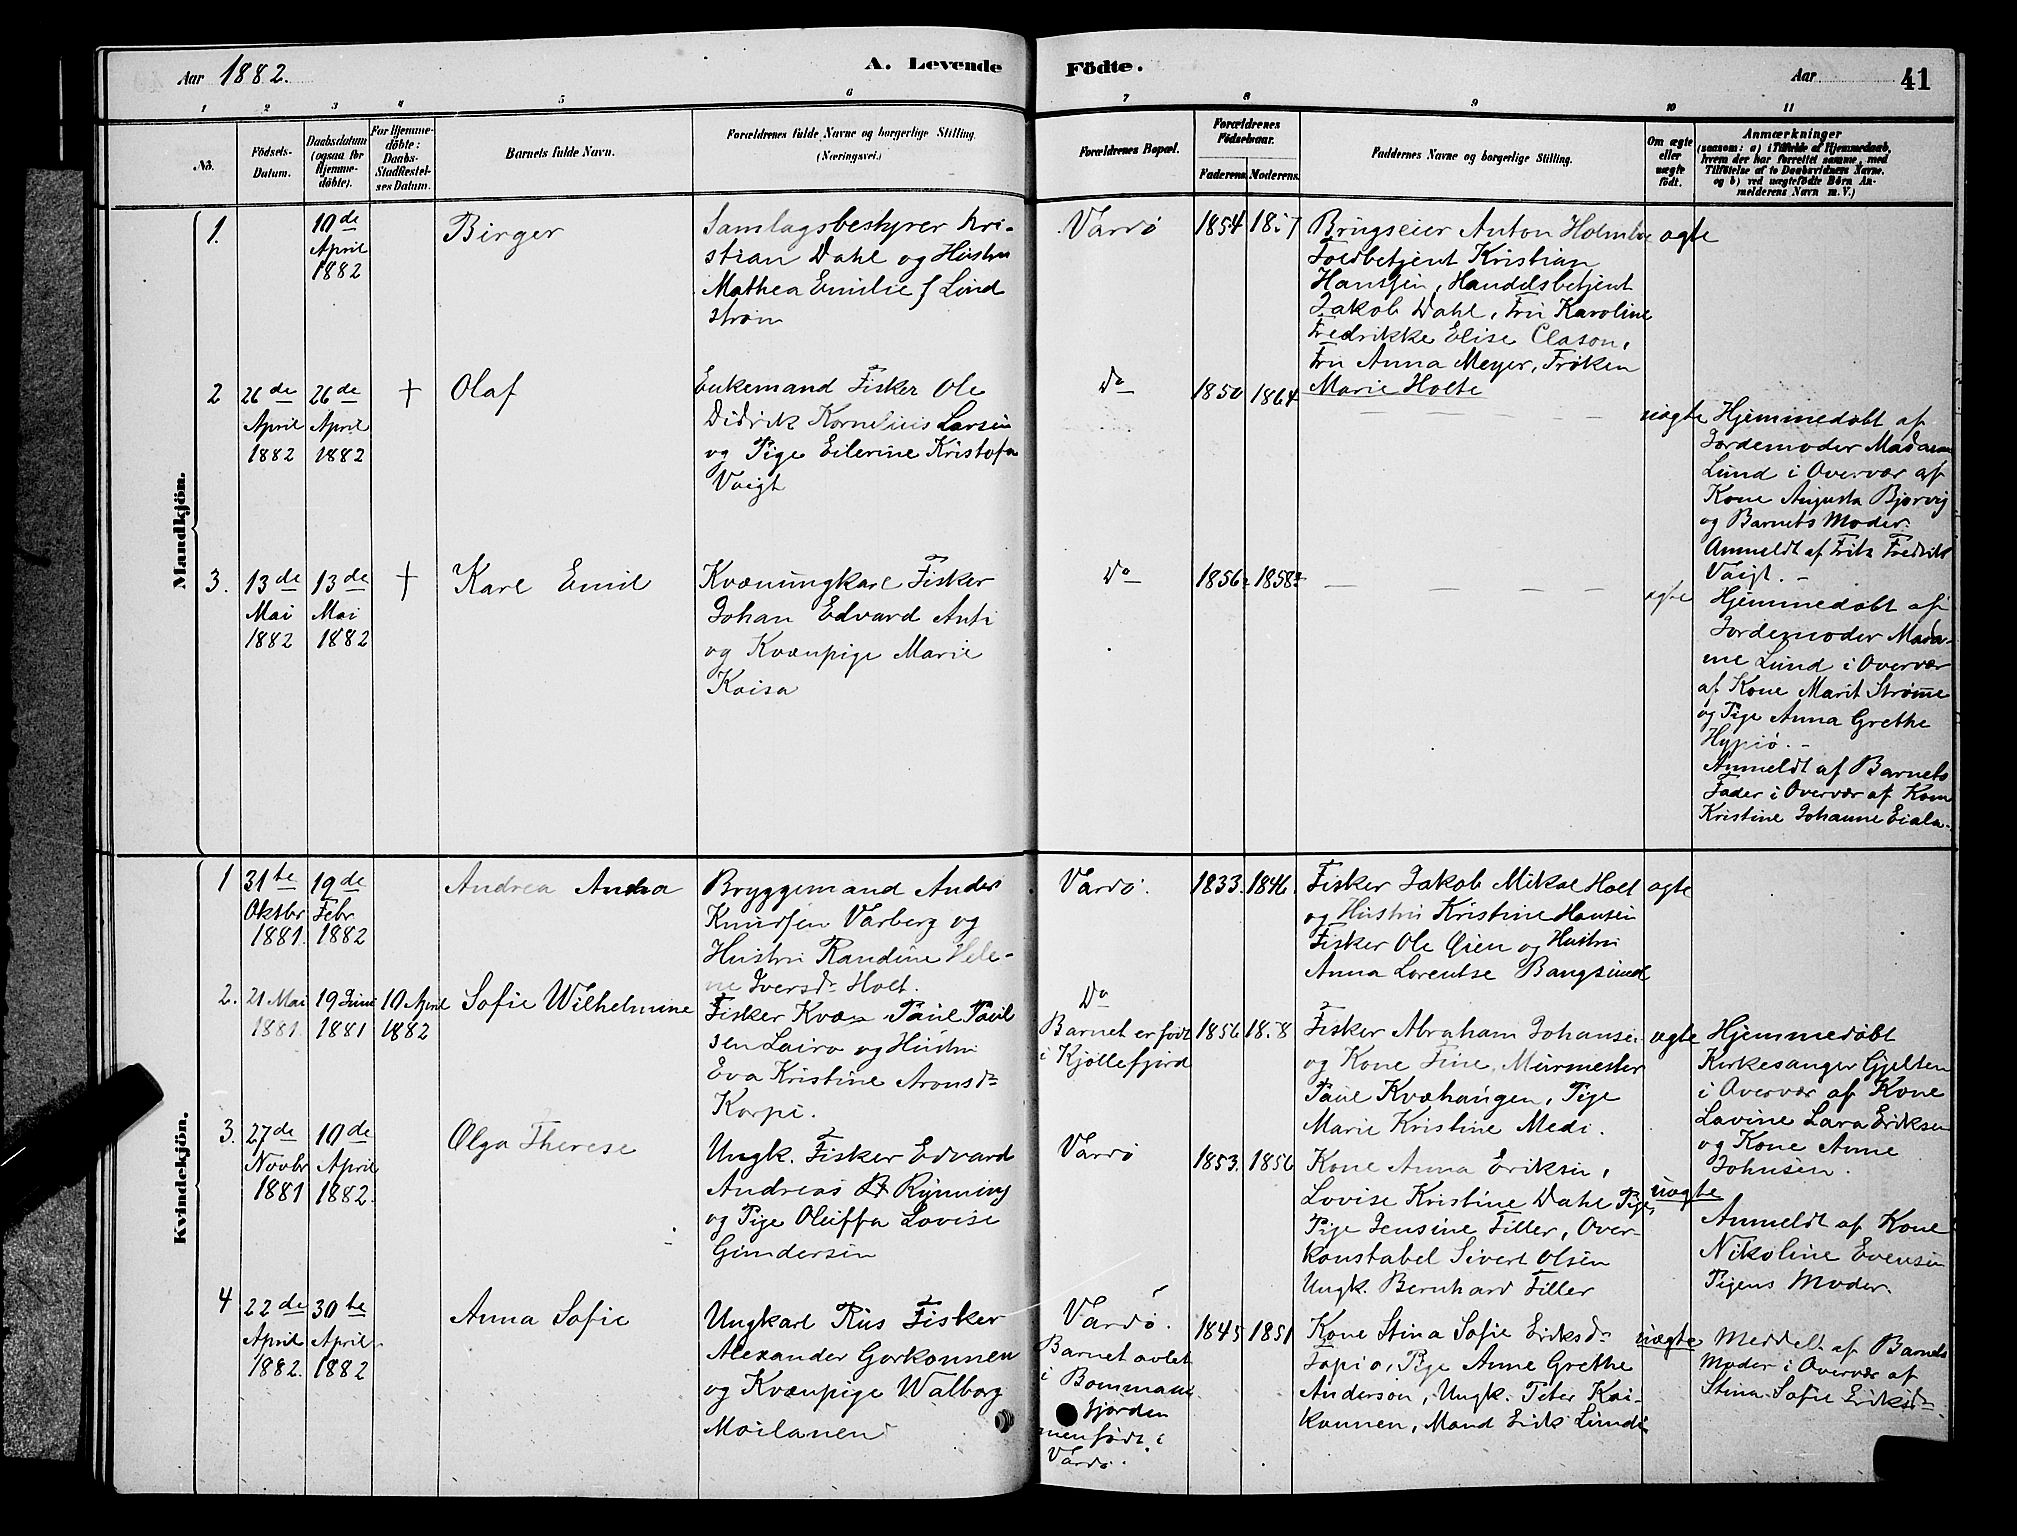 Aar 1882.
A. Levende
Födte.
Aar
41
1 2 3 4 5 6
7 8 9 10 11
No.
Födsels-
Datum.
Daabsdatum
(ogsaa for
Hjemme-
döbte).
For Hjemme-
döbte:
Daabs-
Stadfæstel-
ses Datum.
Barnets fulde Navn.
Forældrenes fulde Navne og borgerlige Stilling.
(Næringsvei.)
Forældrenes Bopæl.
Forældrenes
Födselsaar.
Faderens. Moderens.
Faddernes Navne og borgerlige Stilling.
Om ægte
eller
uægte
født.
Anmærkninger
(saasom: a) i Tilfælde af Hjemmedaab,
hvem der har forrettet samme, med
Tilföielse af to Daabsvidners Navne.
og b) ved uægtefödte Börn An-
melderens Navn m. V.)
Mandkjön.
1.
10de
April
1882
Birger
Samlagsbestyrer Kri-
stian Dahl og Hustru
Mathea Emilie f Lind
strøm
Vardø
1854
Brugseier Anton Holmboe
Toldbetjent Kristian
Hanssen, Handelsbetjent
Jakob Dahl, Fru Karoline
Fredrikke Elise Clason,
Fru Anna Meyer, Frøken
Marie Holte
ægte
2
26de
April
1882
26de
April
1882
†
Olaf
Enkemand Fisker Ole
Didrik Kornelius Larsen
og Pige Eilerine Kristofa
Voigt
Do
1850 1864
uægte
Hjemmedøbt af
Jordemoder Madame
Lund i Overvær af
Kone Augusta Bjørvig
og Barnets Moder.
Anmeldt af Fritz Fredrik
Voigt. –
3.
13de
Mai
1882
13de
Mai
1882
†
Karl Emil
Kvænungkarl Fisker
Johan Edvard Anti
og Kvænpige Marie
Kaisa
Do
1856 1858
ægte
Hjemmedøbt af
Jordemoder Mada-
me Lund i Overvær
af Kone Marit Strømme
og Pige Anna Grethe
Hypiö. –
Anmeldt af Barnets
Fader i Overvær af Kone
Kristine Johanne Eiala.
Kvindekjön.
1
31te
Oktbr
1881.
19de
Febr
1882
Andrea Andrea
Bryggemand Anders
Knudsen Varberg og
Hustru Randine Hele-
ne Iversdr Holt.
Vardø.
1833. 1846.
Fisker Jakob Mikal Holt
og Hustru Kristine Hansen
Fisker Ole Qien og Hustru
Anna Lorentse Bangsund
ægte
2.
21 Mai
1881.
19 Juni
1881
10 April
1882
Sofie Wilhelmine
Fisker Kvæn Paul Paul
sen Laira og Hustru
Eva Kristine Aronsdr
Korpi.
Do
Barnet er født
i Kjøllefjord
1856 1858
Fisker Abraham Johansen
og Kone Fine, Murmester
Paul Kvæhangen, Pige
Marie Kristine Medi.
ægte
Hjemmedøbt
Kirkesanger Gjelten
i Overvær af Kone
Lavine Lara Eriksen
og Kone Anne
Johnsen.
3.
27de
Novbr
1881
10de
April
1882.
Olga Therese
Ungk. Fisker Edvard
Andreas Rynning
og Pige Oluffa Lovise
Gundersen
Vardø
1853. 1856
Kone Anna Eriksen,
Lovise Kristine Dahl Pige,
Pige Jensine Tiller, Over-
konstabel Sivert Olsen
Ungk. Bernhard Tiller
uægte
Anmeldt af Kone
Nikoline Evensen
Pigens Moder.
4
22de
April
1882.
30te
April
1882
Anna Sofie
Ungkarl Rus Fisker
Alexander Gorkonnen
og Kvænpige Walborg
Moilanen
Vardø.
Barnet avlet
i Bommani
fjorden
men født i
Vardø.
1845 1851
Kone Stina Sofie Eriksdr
Tapio, Pige Anne Grethe
Anderson, Ungk. Peter Kai-
konnen, Mand Erik Lundi
uægte
Meddelt af Barnets
Moder i Overvær af
Stina Sofie Eriksdr